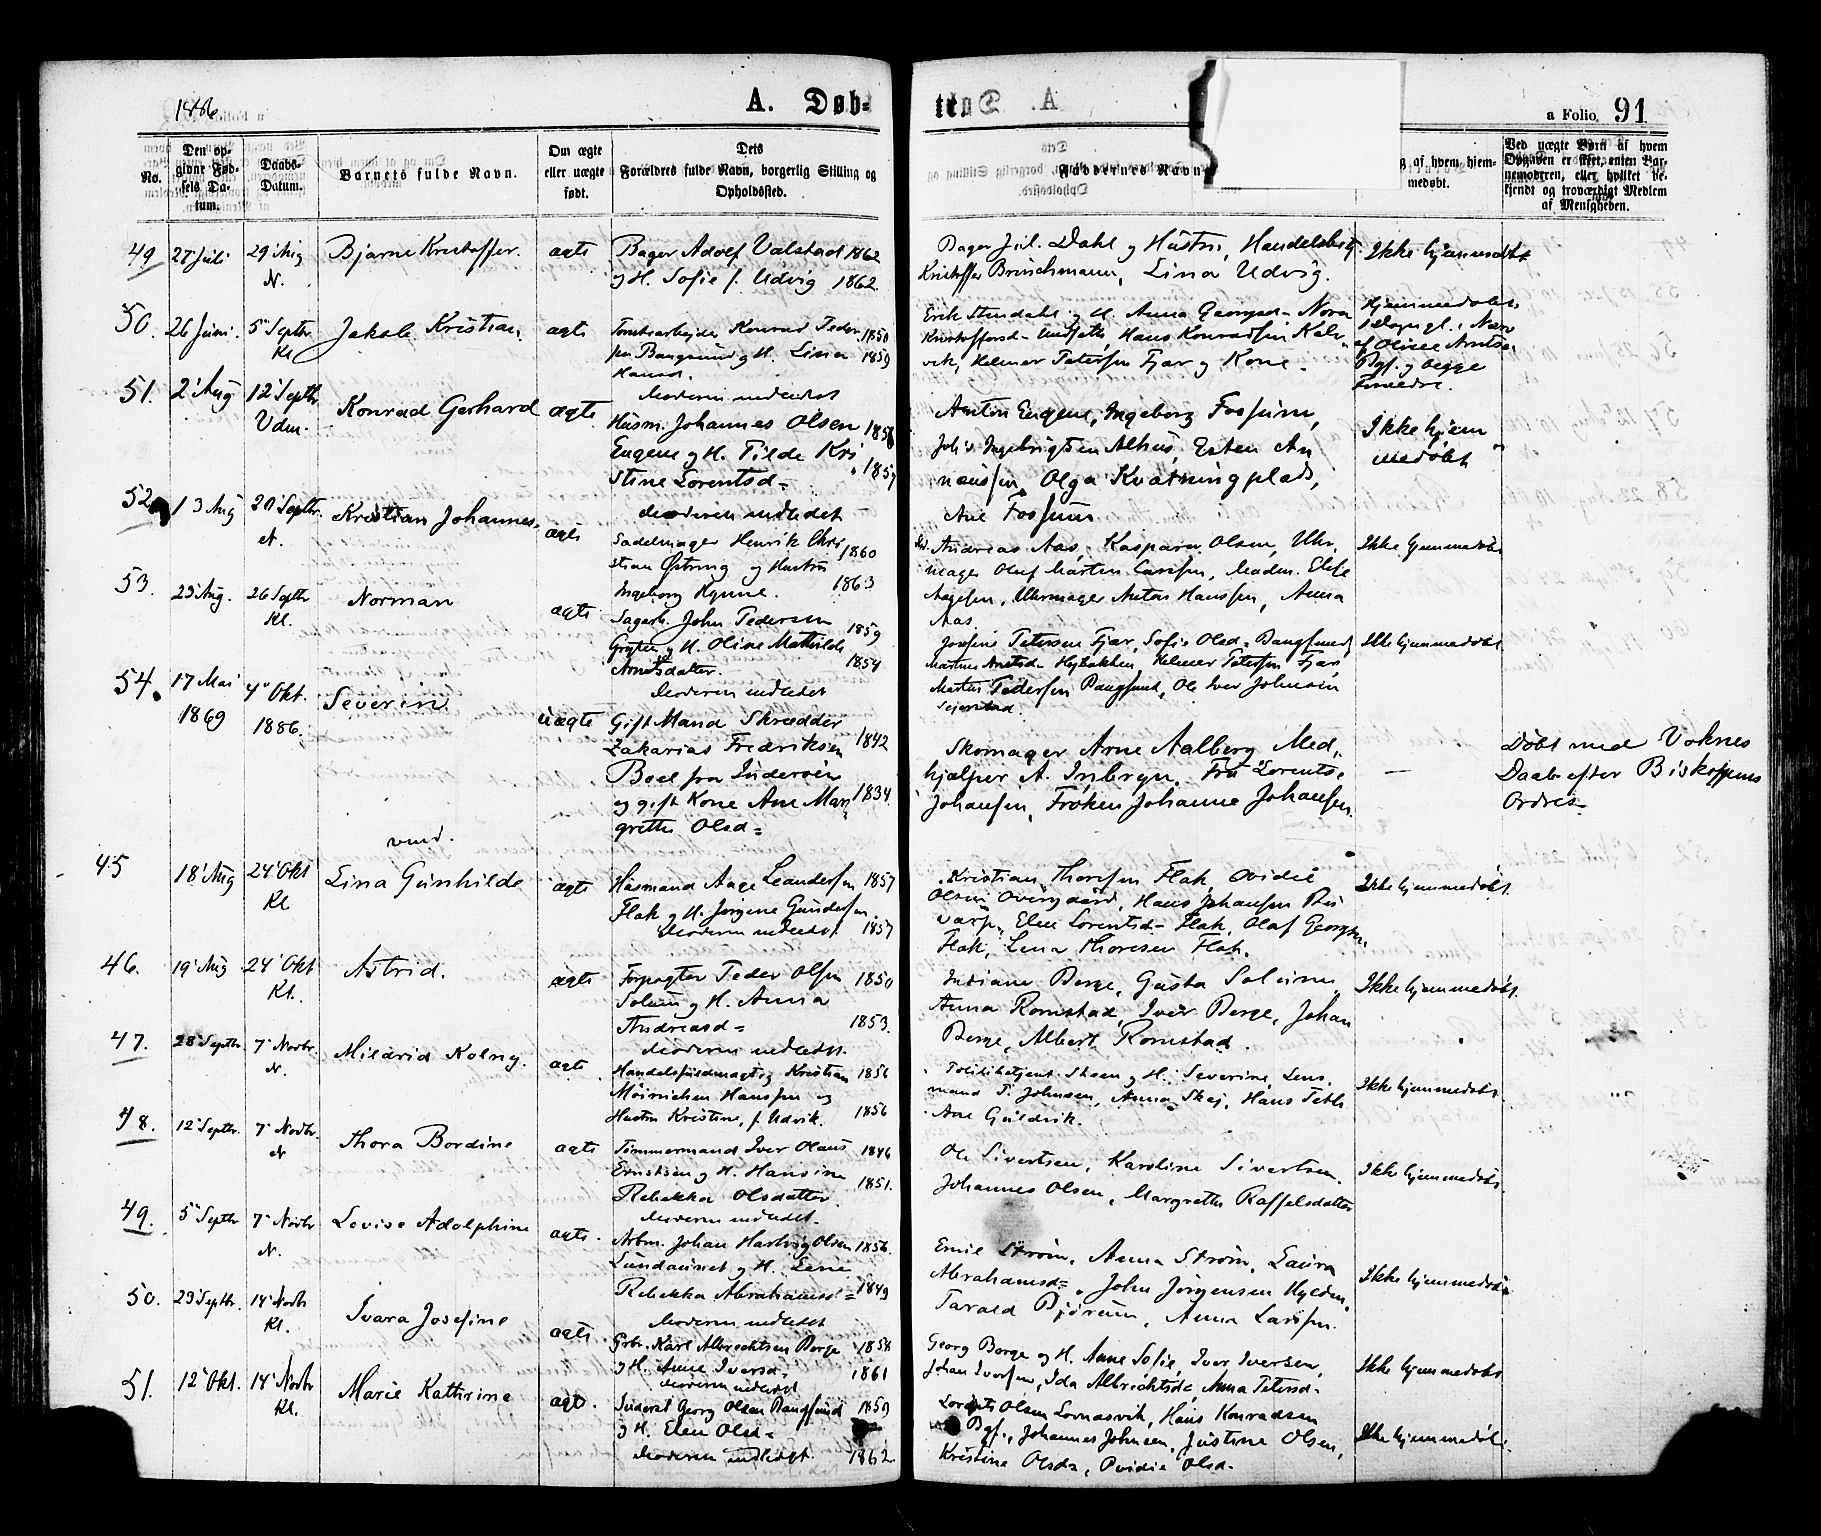 1886
A. Døb-
te.
a Folio. 91
No.
Den op-
givne Fød-
sels Da-
tum.
Daabs-
Datum.
Barnets fulde Navn.
Om ægte
eller uægte
født.
Dets
Forældres fulde Navn, borgerlig Stilling og
Opholdssted.
Faddernes Navn
af hvem hjem-
medøbt.
Ved uægte Børn af hvem
Opgiven er skeet, enten Bar-
nemoderen, eller hvilket be-
kjendt og troværdigt Medlem
af Menigheden.
49 27 Juli 29 Aug N. Bjarne Kristoffer. ægte
Bager Adolf Valstad 1862
og H. Sofie f. Udvig 1862.
Bager Jul. Dahl og Hustru,
Kristoffer Brinchmann, Lina Udvig.
Ikke hjemmedøbt
50. 26 Juni. 5 Septbr. Kl Jakob Kristian. ægte
Konrad Peder- 1850
sen Bangsund og H. Lina 1859
Hansd.
Moderen indledet
Erik Stendahl og H. Anna
Hans Konradsen
Helmer Petersen Fjær og Kone.
Hjemmedøbt
og begge
Forældre.
51. 2 Aug 12 Septbr. Vdm. Konrad Gerhard ægte
Husm. Johannes Olsen 1858
Eugene og H. Tilde Kri 1857
stine Lorentsd-
Moderen indledet
Anton Eugene, Ingeborg Fossum,
Johs Ingebrigtsen Alhus, Esten An
Olga Kvatningplads,
Ane Fossum
Ikke hjem
medøbt
52 13 Aug 20 Septbr. Kristian Johannes. ægte
Sadelmager Henrik Chri 1860
stian Østring og Hustru
Ingeborg Hynne. 1863
Andreas Aas, Kaspara Olsen, Uhr
mager Oluf Martin Larssen, Madm. Else
Aagesen, Uhrmager Anton Hanssen, Anna
Aas.
Ikke hjemmedøbt
53. 23 Aug. 26 Septbr Kl. Norman ægte
Sagarb. John Pedersen 1859
og H. Oline Mathilde 1854
Arntsdatter.
Moderen indledet
Josefine Petersen Fjær, Sofie Olsd. Bangsund
Martine Arntsd- Helmer Petersen Fjær,
Pedersen Bangsund, Ole Iver Johnsen
Seierstad
Ikke hjemmedøbt
54. 17 Mai 1869 4 Okt. 1886. Severin uægte
Gift Mand Skrædder
Zakarias Fredriksen 1842
Boel fra Inderøen
og gift Kone Ane Mar 1834
grethe Olsd=
Skomager Arne Aalberg Med-
hjælper A. Fru Lorents.
Johansen, Frøken Johanne Johansen.
—
Døbt med Voknes
Daab efter Biskoppens
Ordres
45 18 Aug 24 Okt Kl Lina Gunhilde ægte
Husmand Aage Leandersen 1857
Flak og H. Jørgine Gundersen. 1857
Moderen indledet.
Kristian Thoresen Flak, Ovidie
Olsen Overgaard, Hans Johansen
Elen Lorentsd- Flak, Olaf
Flak, Lena Thoresen Flak.
Ikke hjemmedøbt.
46. 19 Aug 24 Okt Kl. Astrid. ægte
Forpagter Peder Olsen 1850
Solum og H. Anna
Andreasd= 1853.
Moderen indledet.
Indiane Berge, Gusta Solum
Anna Romstad, Iver Berge, Johan
Berge, Albert Romstad.
Ikke hjemmedøbt.
47. 28 Septbr 7 Novbr. N. Mildrid Kolny. ægte
Handelsfuldmægtig Kristian 1856
Hanssen og
Hustru Kristine, f. Udvik. 1856
Politibetjent Skeen og H. Severine, Lens
mand P. Johnsen, Anna Skej, Hans
Ane Guldvik.
Ikke hjemmedøbt.
48. 12 Septbr. 7 Novbr. N Thora Bordine ægte
Tømmermand Iver Olaus 1846
Erntsen og H. Hansine 1851.
Rebekka Olsdatter
Moderen indledet.
Ole Sivertsen, Karoline Sivertsen.
Johannes Olsen, Margrethe Raffelsdatter
Ikke hjemmedøbt.
49. 5 Septbr 7 Novbr N. Lovise Adolphine ægte.
Arbm. Johan Hartvig Olsen 1856.
og H. Lene
Rebekka Abrahamsd= 1849
Moderen indledet
Emil Strøm, Anna Strøm, Laura
Abrahamsd=, John Jørgensen Hylden,
Anna Larssen.
Ikke hjemmedøbt
50. 23 Septbr. 14 Novbr Kl. Svara Josefine ægte.
Grbr. Karl Albrechtsen Berge 1858
og H. Anne Iversd. 1861
Moderen indledet
Georg Berge og H. Anne Sofie, Iver Iversen,
Johan Iversen, Ida Albrechtsd. Anna Petersd-
Ikke hjemmedøbt
51. 12 Okt. 14 Novbr Kl. Marie Kathrine ægte.
Inderst Georg Olsen Bangsund 1859
og H. Elen Olsd=
Moderen indledet. 1862
Lorents Olsen Lovnasvik, Hans Konradsen
Bgs., Johannes Johnsen, Justine Olsen,
Kristine Olsd=, Ovidie Olsd-
Ikke hjemmedøbt.